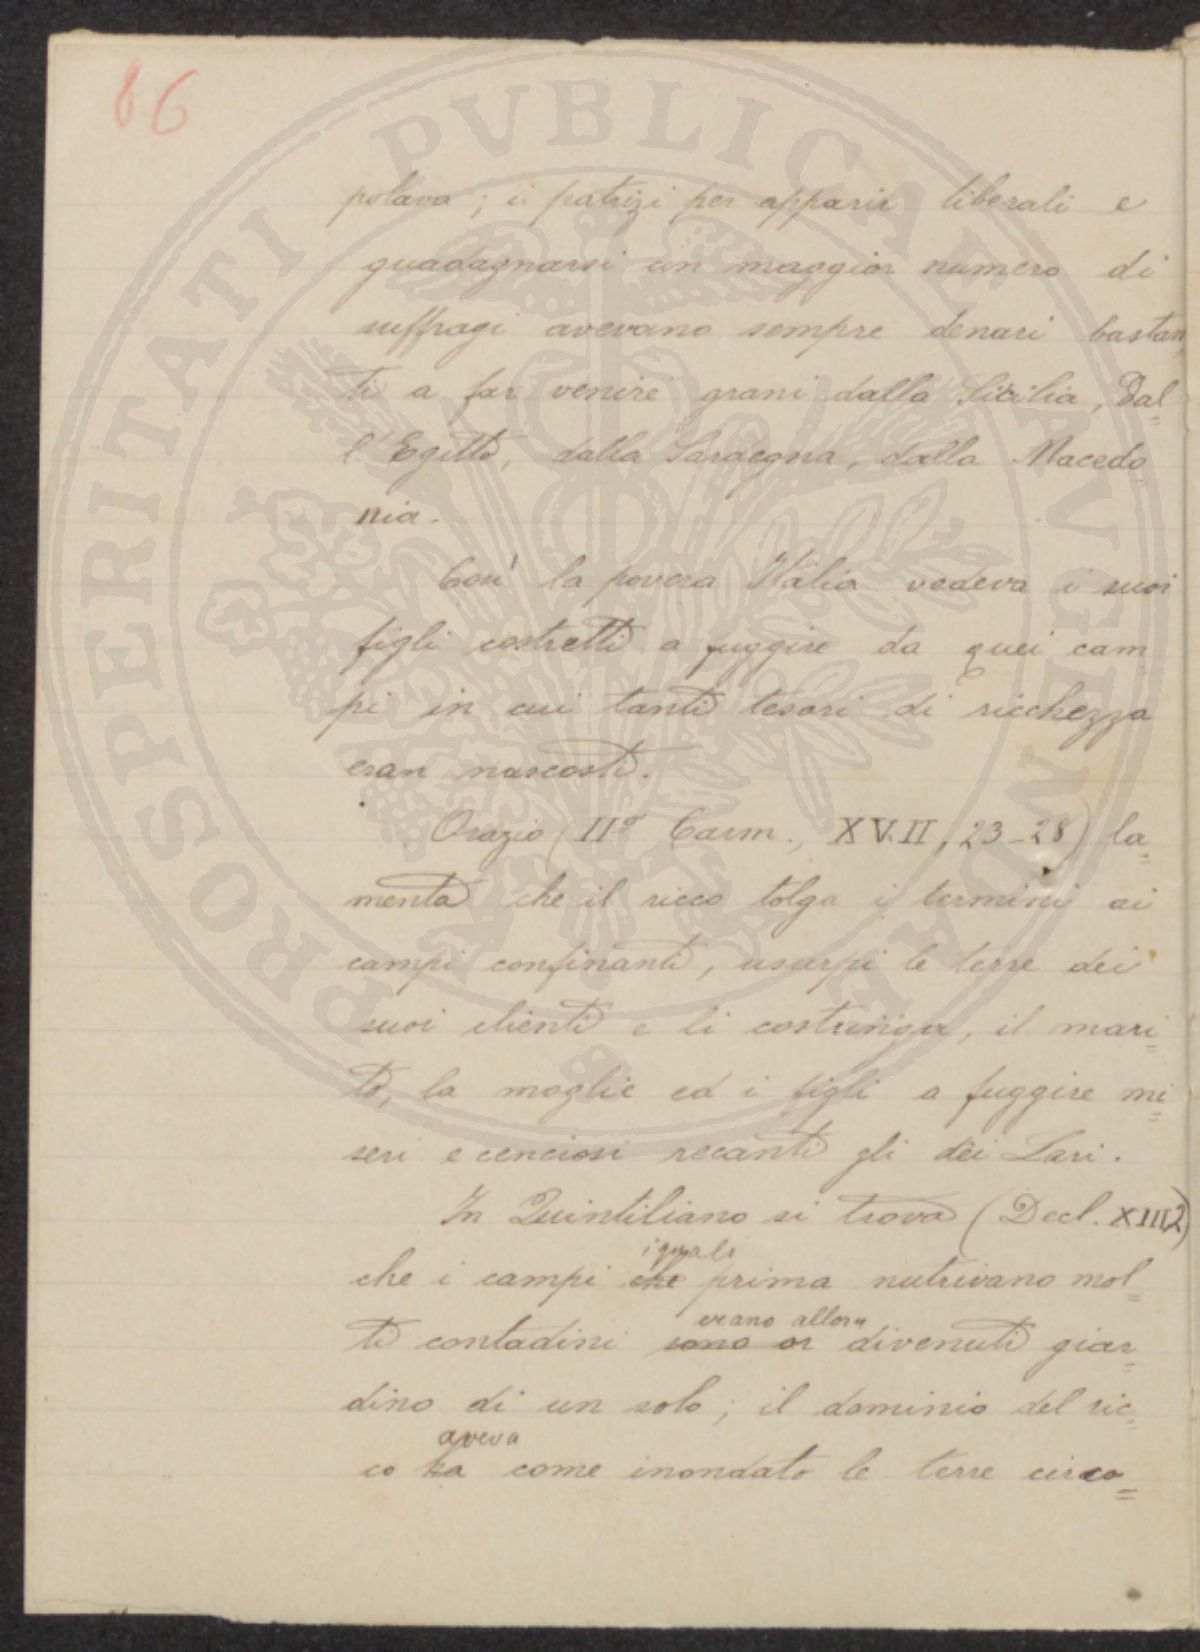 86
polava; i patrizi per apparir liberali e
guadagnarsi un maggior numero di
suffragi avevano sempre denari bastan
ti a far venire grani dalla Sicilia, dal=
l'Egitto, dalla Sardegna, dalla Macedo
nia.
Così la povera Italia vedeva i suoi
figli costretti a fuggire da quei cam
pi in cui tanti tesori di ricchezza
eran nascosti.
Orazio (IIº Carm., XVII, 23-28) la=
menta che il ricco tolga i termini ai
campi confinanti, usurpi le terre dei
suoi clienti e li costringa, il mari=
to, la moglie ed i figli a fuggire mi=
seri e cenciosi recanti gli dèi Lari.
In Quintiliano si trova (Decl. XIII,2)
iquali
che i campi che prima nutrivano mol=
erano allora
ti contadini sono or divenuti giar=
dino di un solo; il dominio del ric=
aveva
co ha come inondato le terre circo=
PROSPERITATI PVBLICAE AVGENDAE